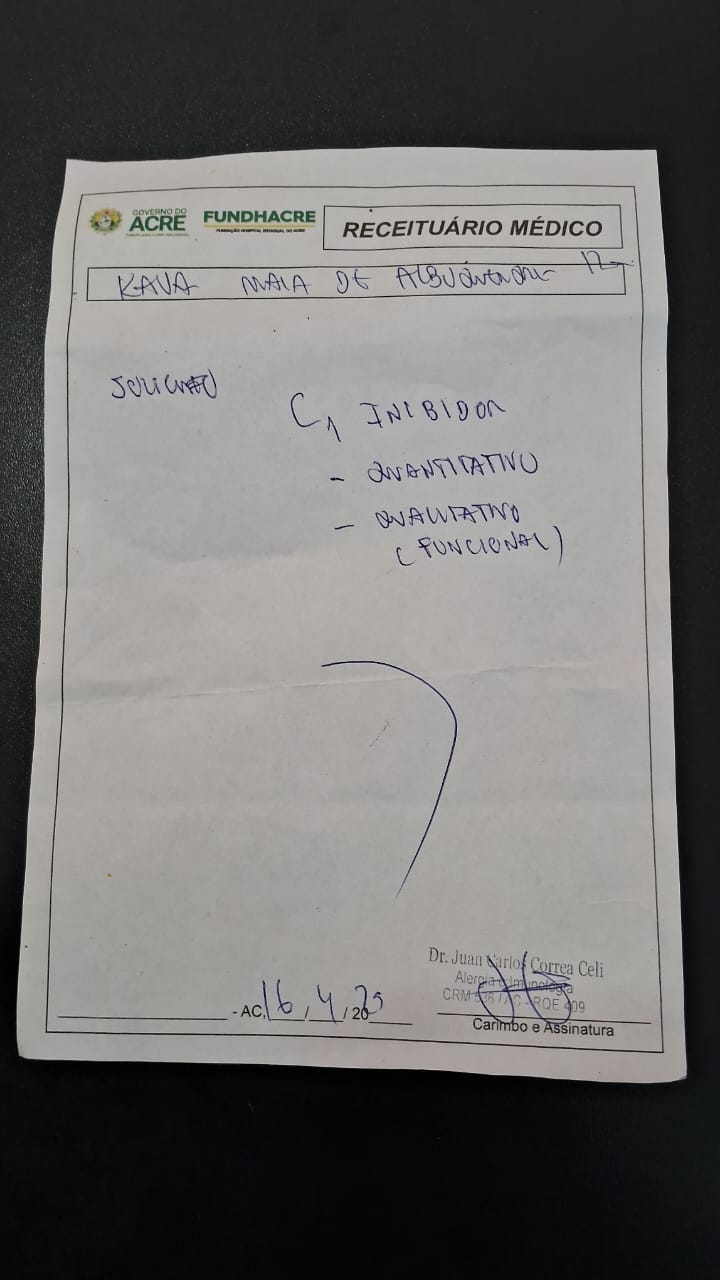 GOVERNO DO
ACRE
FUNDHACRE
FUNDAÇÃO HOSPITAL ESTADUAL DO ACRE
RECEITUÁRIO MÉDICO
KAUA MAIA DE ALBUQUERQUE
SOLICITO
C1 INIBIDOR
- QUANTITATIVO
- QUALITATIVO
(FUNCIONAL)
Dr. Juan Carlos Correa Celi
Alergia e Imunologia
CRM 536 / AC - RQE 409
- AC, 16 / 4 / 2025
Carimbo e Assinatura